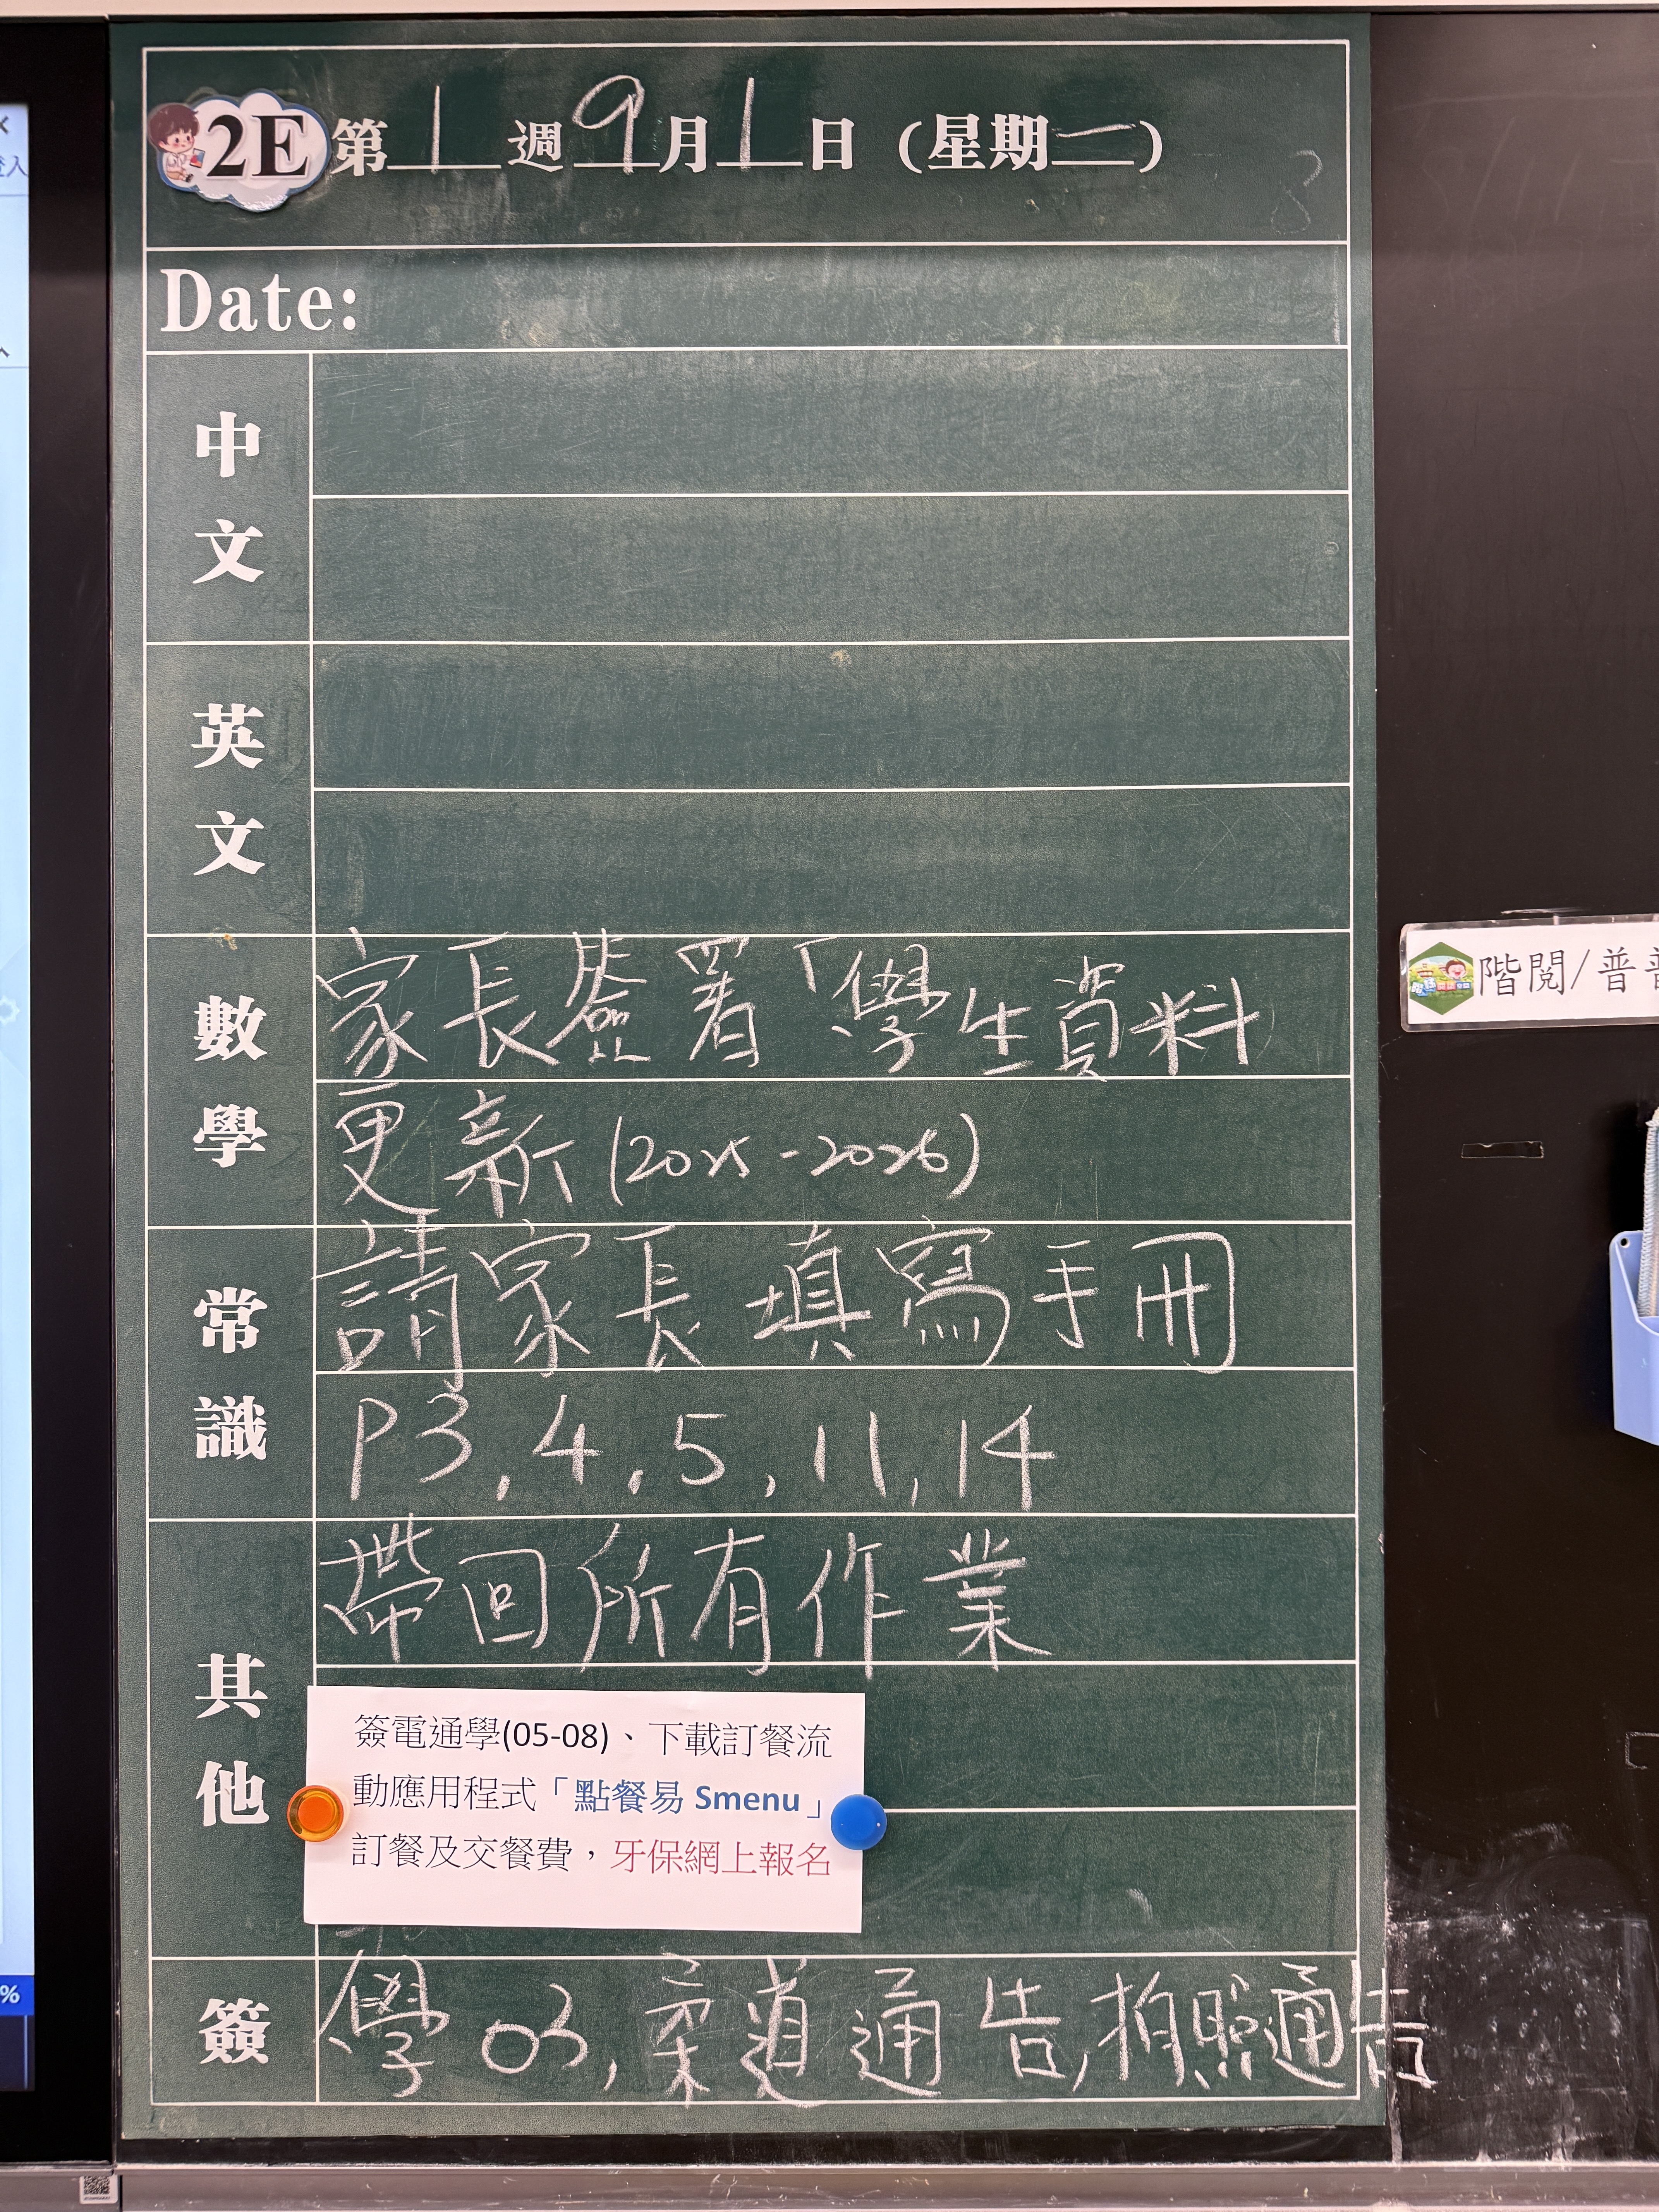 2E 第 1 週 9 月 1 日 (星期一)
Date:
中文
英文
數學
家長簽署「學生資料
更新(2025-2026)
常識
請家長填寫手冊
P3,4,5,11,14
其他
帶回所有作業
簽電通學(05-08)、下載訂餐流
動應用程式「點餐易 Smenu」
訂餐及交餐費，牙保網上報名
簽
學03,柔道通告,拍照通告
階閱/普
登入
%